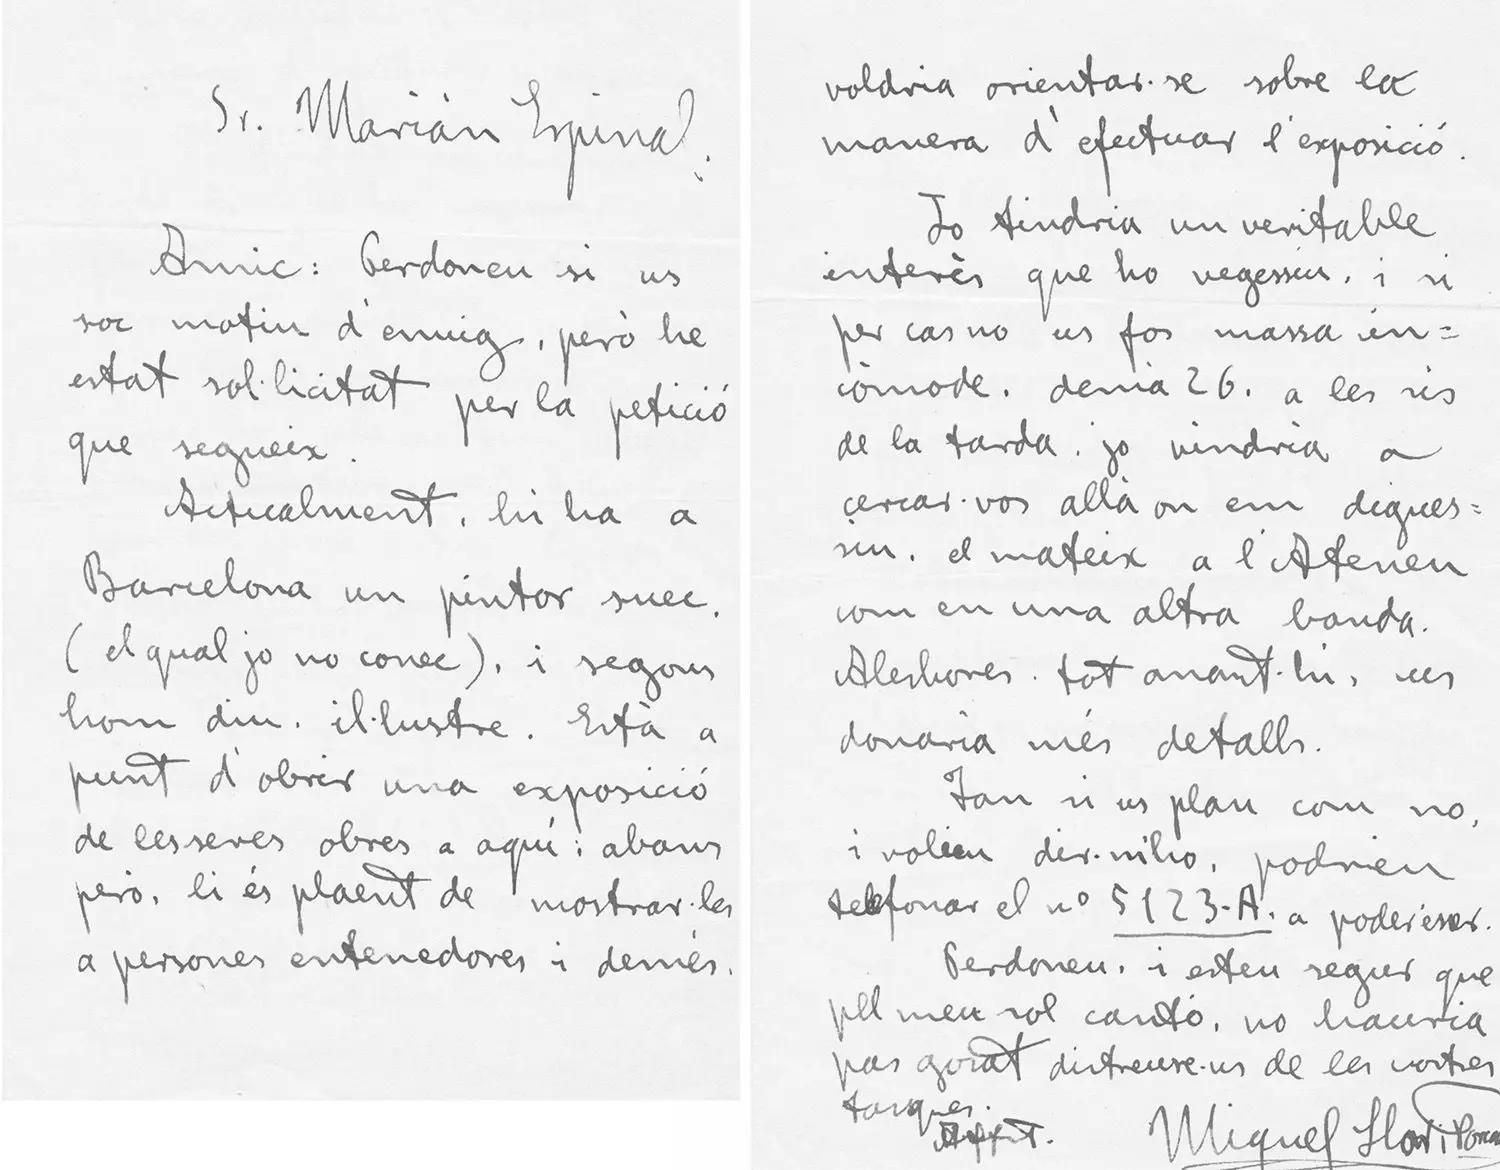 Sr. Marián Espinal:
Amic: Perdoneu si us
soc motiu d'enuig, però he
estat sol·licitat per la petició
que segueix.
Actualment, hi ha a
Barcelona un pintor suec.
(el qual jo no conec), i segons
hom diu, il·lustre. Està a
punt d'obrir una exposició
de lesseves obres a aquí; abans
però, li és plaent de mostrar-les
a persones entenedores i demés.
voldria orientar-se sobre la
manera d'efectuar l'exposició.
Jo tindria un veritable
interès que ho vegessiu, i si
per cas no us fos massa in=
còmode, demà 26, a les sis
de la tarda, jo vindria a
cercar-vos allà on em digues=
siu, el mateix a l'Ateneu
com en una altra banda.
Aleshores, tot anant-hi, us
donaria més detalls.
Tan si us plau com no,
i volieu dir-m'ho, podrieu
telefonar el nº 5123-A, a poder ésser.
Perdoneu, i esteu segur que
pel meu sol cantó, no hauria
pas gosat distreure-us de les vostres
tasques.
Affm.
Miquel Llor i Forcada